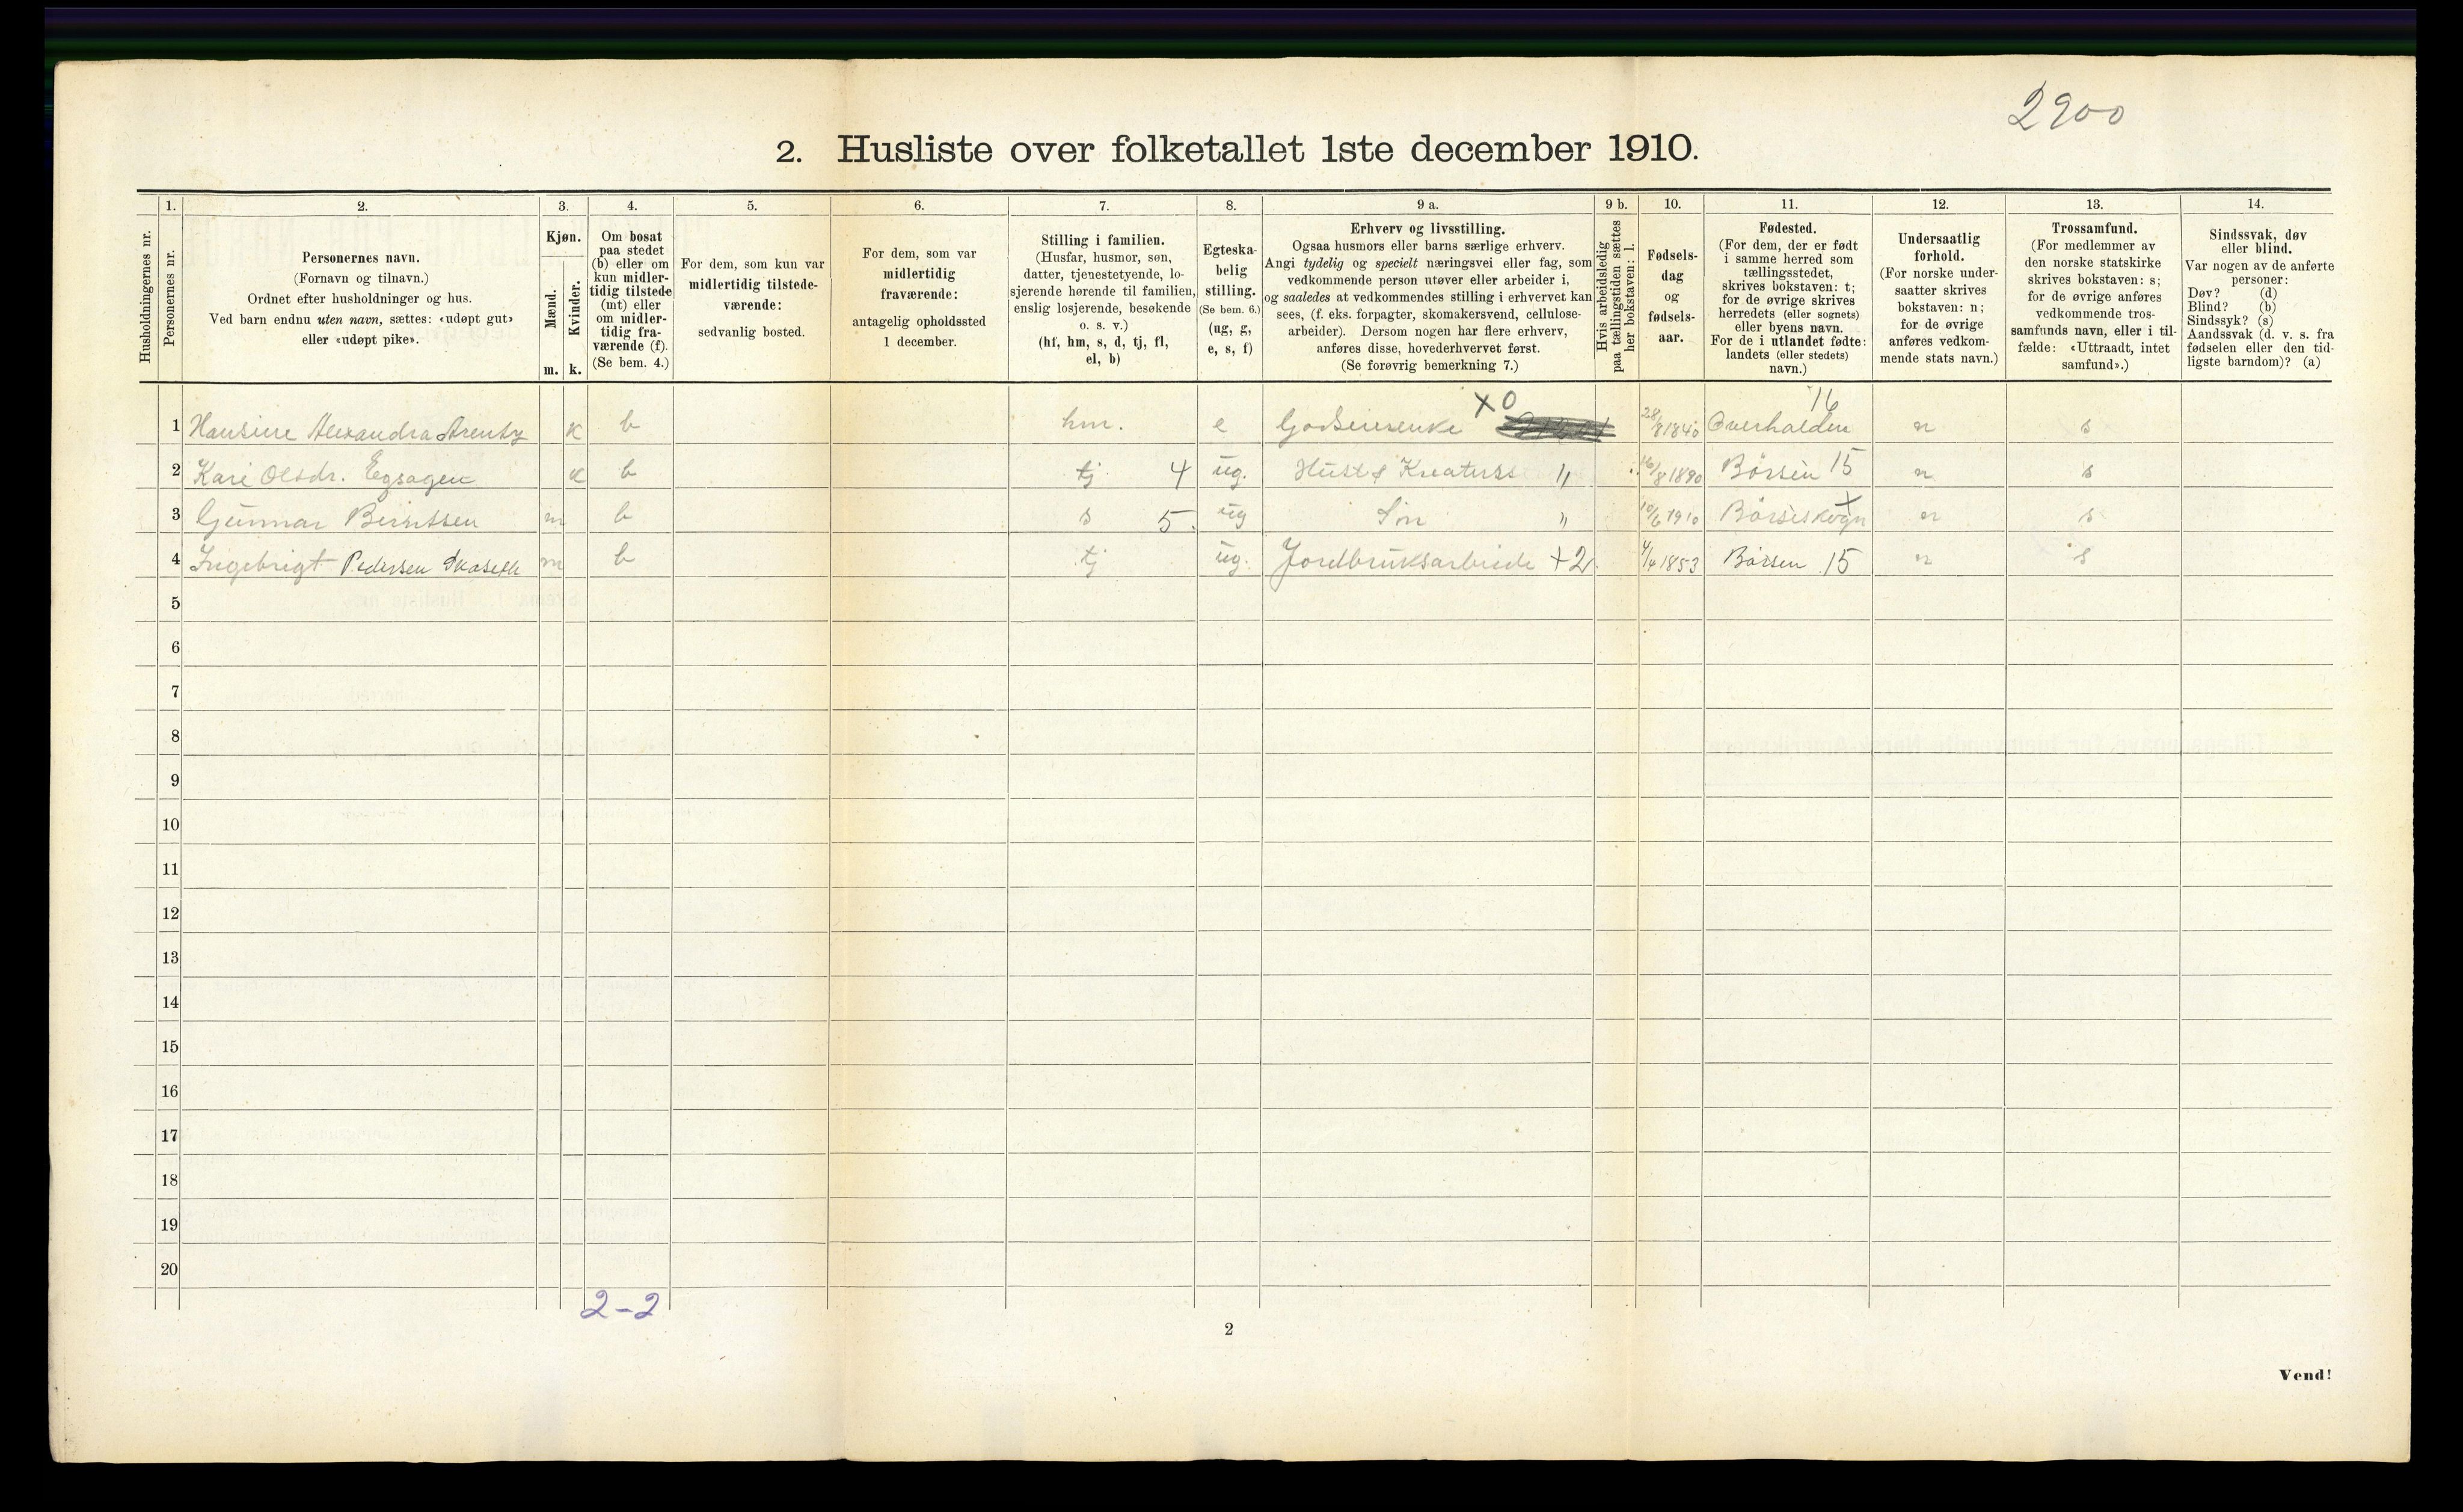 2900
2. Husliste over folketallet 1ste december 1910.
Husholdningernes nr.
1.
Personernes nr.
2.
Personernes navn.
(Fornavn og tilnavn.)
Ordnet efter husholdninger og hus.
Ved barn endnu uten navn, sættes: «udøpt gut»
eller «udøpt pike».
3.
Kjøn.
Mænd.
Kvinder.
m. k.
4.
Om bosat
paa stedet
(b) eller om
kun midler-
tidig tilstede
(mt) eller
om midler-
tidig fra-
værende (f).
(Se bem. 4.)
5.
For dem, som kun var
midlertidig tilstede-
værende:
sedvanlig bosted.
6.
For dem, som var
midlertidig
fraværende:
antagelig opholdssted
1 december.
7.
Stilling i familien.
(Husfar, husmor, søn,
datter, tjenestetyende, lo-
sjerende hørende til familien,
enslig losjerende, besøkende
o. s. v.)
(hf, hm, s, d, tj, fl,
el, b)
8.
Egteska-
belig
stilling.
(Se bem. 6.)
(ug, g,
e, s, f)
9 a.
Erhverv og livsstilling.
Ogsaa husmors eller barns særlige erhverv.
Angi tydelig og specielt næringsvei eller fag, som
vedkommende person utøver eller arbeider i,
og saaledes at vedkommendes stilling i erhvervet kan
sees, (f. eks. forpagter, skomakersvend, cellulose-
arbeider). Dersom nogen har flere erhverv,
anføres disse, hovederhvervet først.
(Se forøvrig bemerkning 7.)
9 b.
Hvis arbeidsledig
paa tællingstiden sættes
her bokstaven: l.
10.
Fødsels-
dag
og
fødsels-
aar.
11.
Fødested.
(For dem, der er født
i samme herred som
tællingsstedet,
skrives bokstaven: t;
for de øvrige skrives
herredets (eller sognets)
eller byens navn.
For de i utlandet fødte:
landets (eller stedets)
navn.)
12.
Undersaatlig
forhold.
(For norske under-
saatter skrives
bokstaven: n;
for de øvrige
anføres vedkom-
mende stats navn.)
13.
Trossamfund.
(For medlemmer av
den norske statskirke
skrives bokstaven: s;
for de øvrige anføres
vedkommende tros-
samfunds navn, eller i til-
fælde: «Uttraadt, intet
samfund».)
14.
Sindssvak, døv
eller blind.
Var nogen av de anførte
personer:
Døv? (d)
Blind? (b)
Sindssyk? (s)
Aandssvak (d. v. s. fra
fødselen eller den tid-
ligste barndom)? (a)
X0 16
1 Hansine Alexandra Arentz k b hm. e 28/8 1840 Overhalden n s
2 Kari Olsdr. Egsagen k b tj 4 ug. " 16/8 1890 Børsen 15 n s
3 Gunnar Berntsen m b s 5. ug Søn " 10/6 1910 Børseskogn X n s
4 Ingebrigt Pedersen m b tj ug. Jordbruksarbeide +2 4/4 1853 Børsen 15 n s
5
6
7
8
9
10
11
12
13
14
15
16
17
18
19
20
2-2
2
Vend!